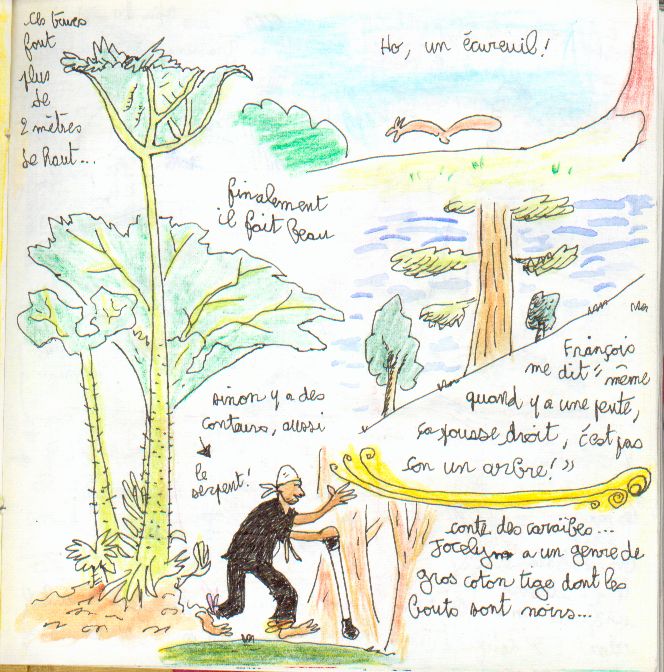 Ces trucs
font
plus
de
2 mètres
de haut...
Ho, un écureuil!
finalement
il fait beau
François
me dit "même
quand y a une pente,
ça pousse droit, c'est pas
con un arbre!"
sinon y a des
conteurs, aussi
le
serpent!
conte des caraïbes...
Jocelyn a un genre de
gros coton tige dont les
bouts sont noirs...